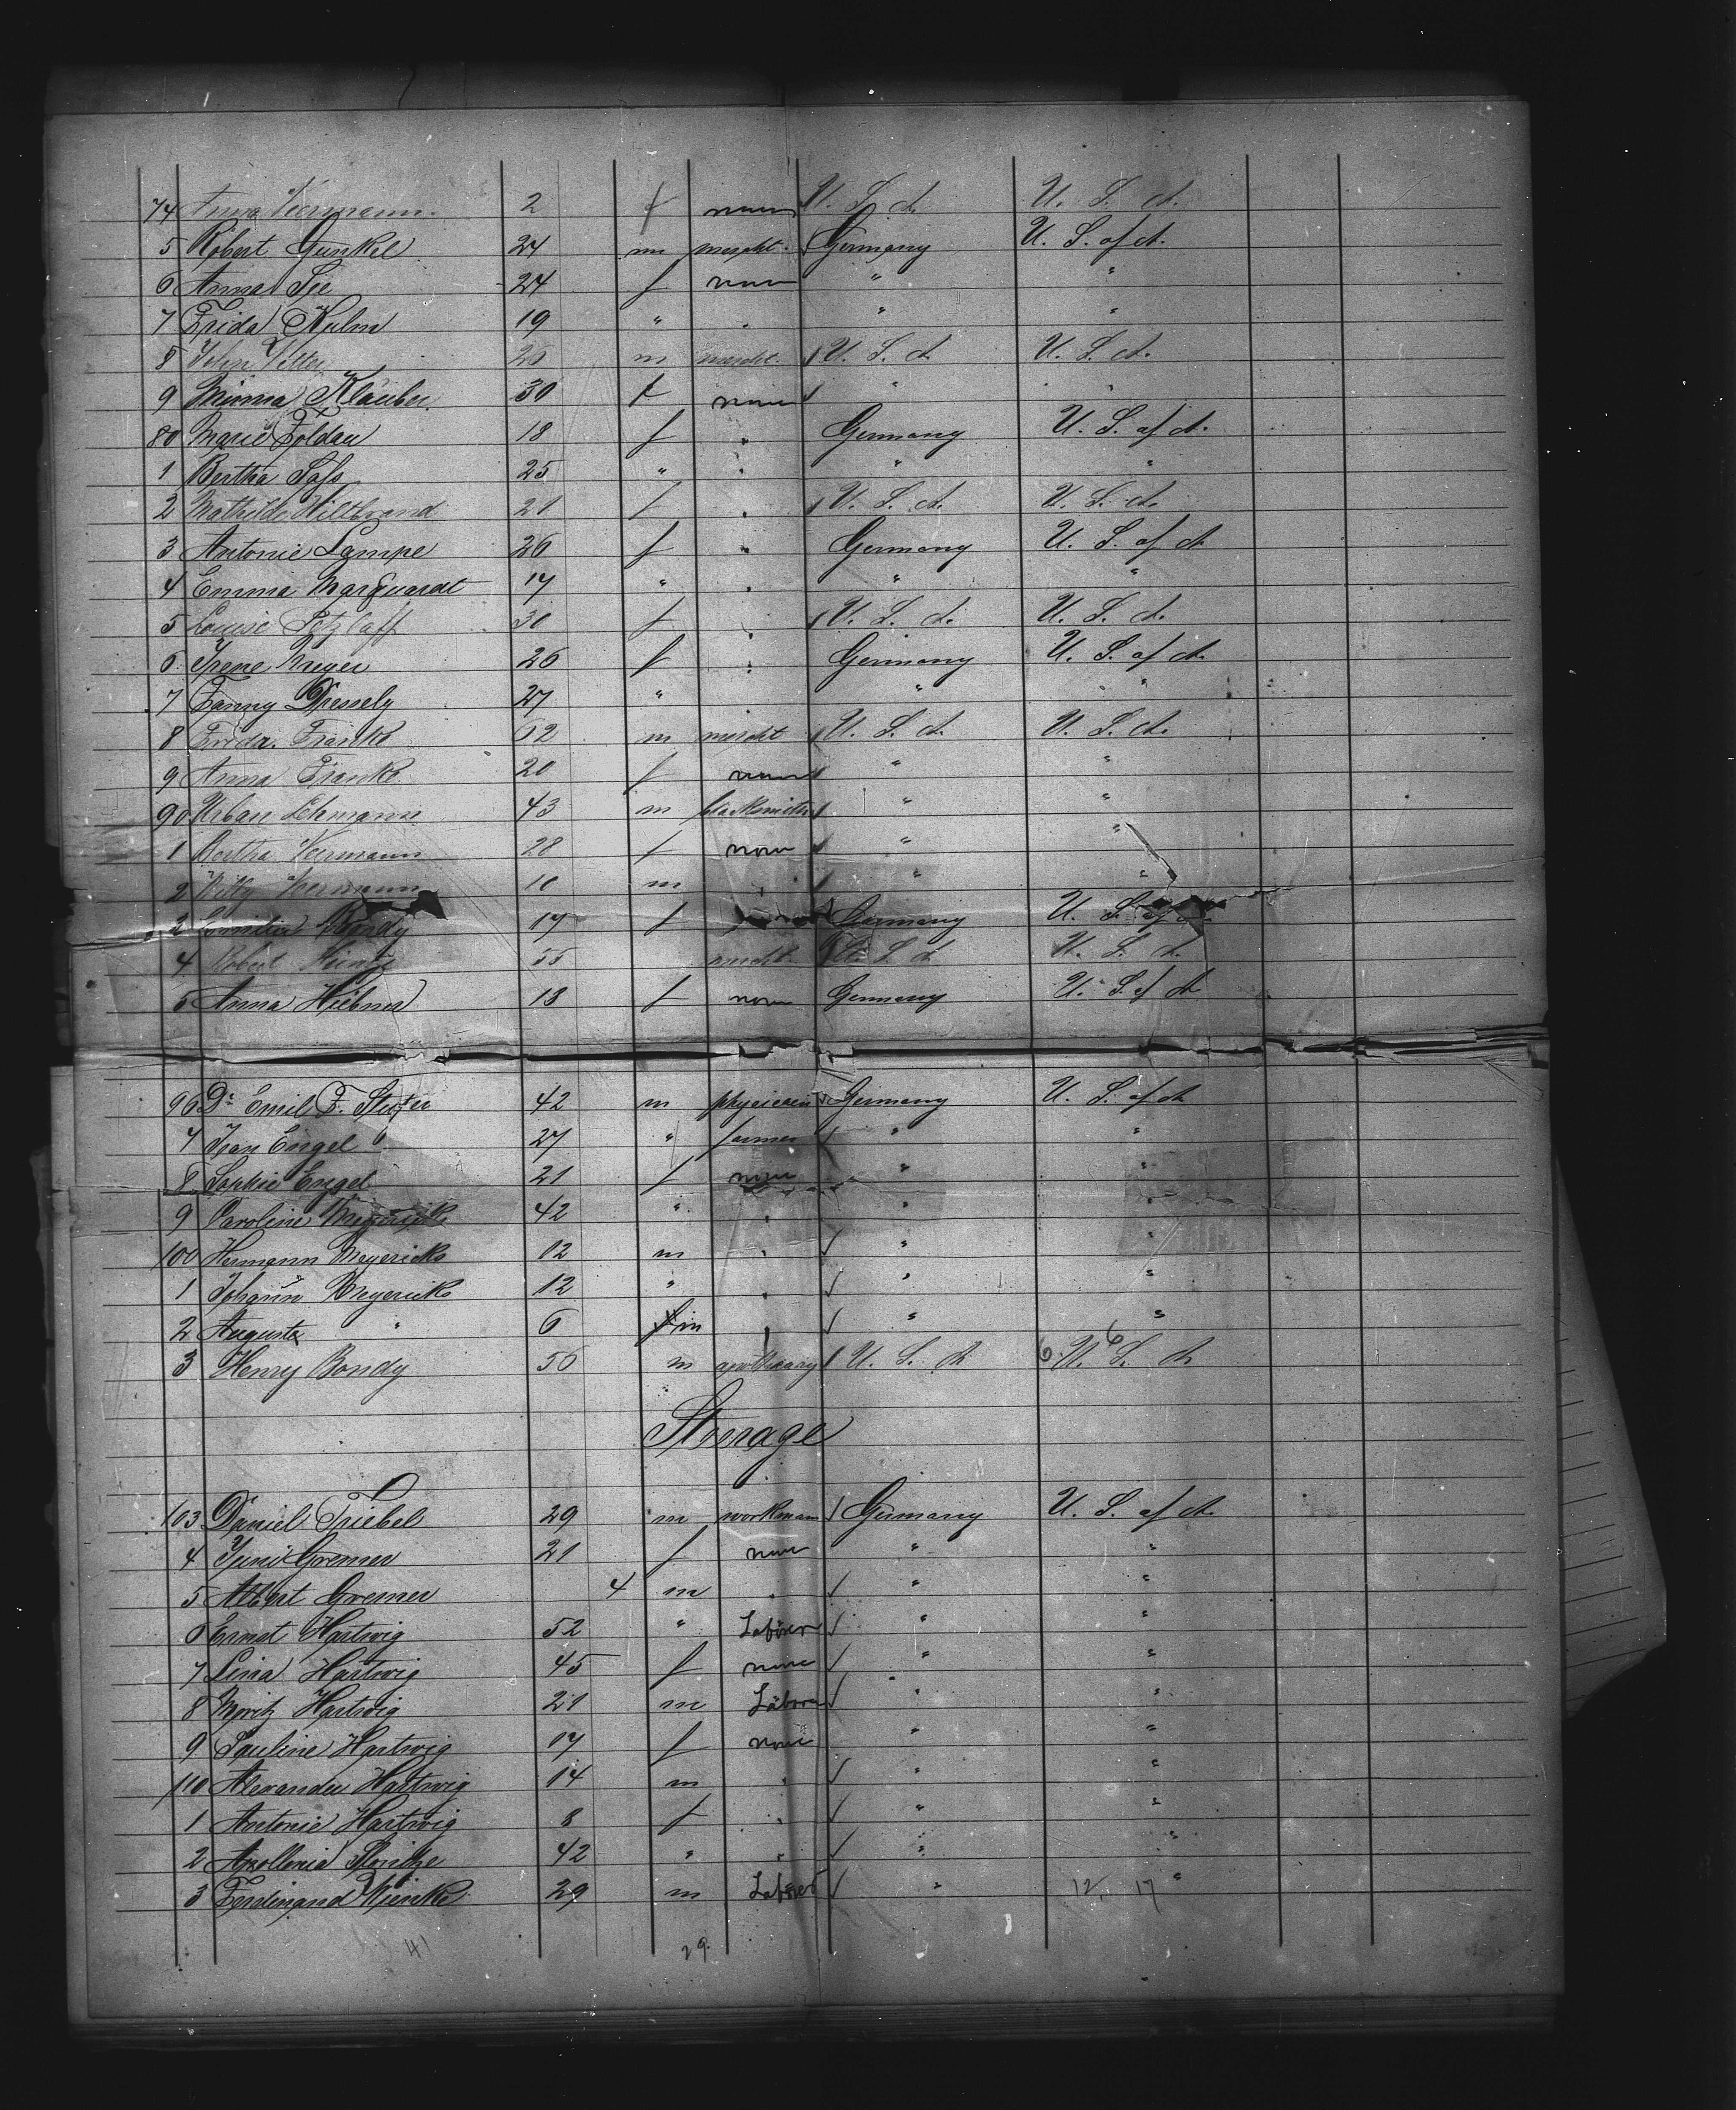 74 Anna Veermann. 2 f none U. S. A. U. S. A.
5 Robert Gunkel 24 m mercht. Germany U. S. of A.
6 Anna Sie 24 f none " "
7 Frida Kulm 19 " " " "
8 John Vetter 26 m mercht. U. S. A. U. S. A.
9 Minna Klauber. 30 f none " "
80 Marie Foldau 18 f " Germany U. S. of A.
1 Bertha Sass 25 " " " "
2 Mathilde Hiltbrand 21 f " U. S. A. U. S. A.
3 Antonie Lampe 26 f " Germany U. S. of A
4 Emma Marquardt 17 " " " "
5 Louise Setzlaff 30 f " U. S. A. U. S. A.
6 Irene Meyer 26 f " Germany U. S. of A.
7 Fanny Dressely 27 " " " "
8 Franke 62 m mercht U. S. A. U. S. A.
9 Anna Franke 20 f none " "
90 Urban Lehmann 43 m blacksmith " "
1 Bertha Veermann 28 f none " "
2 Willy Veermann 10 m " " "
2 Bondy 17 f Germany U. S. of A.
4 Robert Heintz 55 mercht. U. S. A U. S. A.
5 Anna Hübner 18 f none Germany U. S. of A
96 Dr Emil F. 42 m physician Germany U. S. of A
7 Ivan Engel 27 " farmer " "
8 Sophie Engel 21 f none " "
9 Caroline Meyericks 42 " " " "
100 Hermann Meyericks 12 m " " "
1 Johann Meyericks 12 " " " "
2 Augusta " 6 m " " "
3 Henry Bondy 56 m apothecary U. S. A 6 U. S. A
Steerage
103 Daniel Triebel 29 m workman Germany U. S. of A.
4 Gremer 21 f none " "
5 Albert Gremer 4 m " " "
6 Ernst Hartwig 52 " Laborer " "
7 Lina Hartwig 45 f none " "
8 Moritz Hartwig 21 m Laborer " "
9 Pauline Hartwig 17 f none " "
110 Alexander Hartwig 14 m " " "
1 Antonie Hartwig 8 f " " "
2 Apollonia 42 " " " "
3 Ferdinand Wienke 29 m Laborer " 12, 17 "
41 29